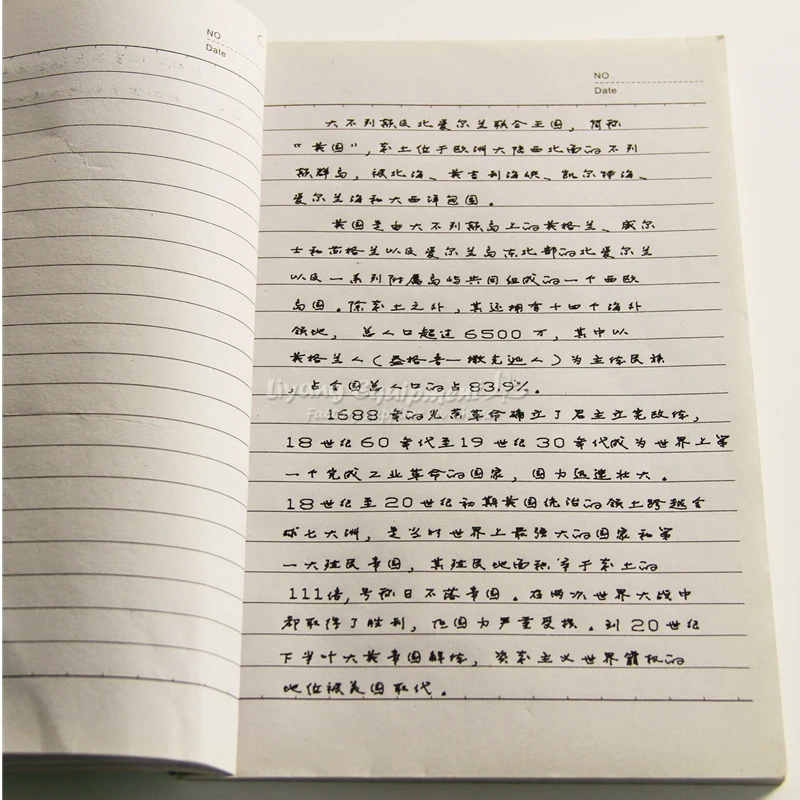 NO
Date
NO.
Date
大不列颠及北爱尔兰联合王国，简称
“英国”，本土位于欧洲大陆西北面的不列
颠群岛，被北海、英吉利海峡、凯尔特海、
爱尔兰海和大西洋包围。
英国是由大不列颠岛上的英格兰、威尔
士和苏格兰以及爱尔兰岛东北部的北爱尔兰
以及一系列附属岛屿共同组成的一个西欧
岛国。除本土之外，其还拥有十四个海外
领地，总人口超过6500万，其中以
英格兰人（盎格鲁一撒克逊人）为主体民族
，占全国总人口的占83.9%。
1688年的光荣革命确立了君主立宪政体，
18世纪60年代至19世纪30年代成为世界上第
一个完成工业革命的国家，国力迅速壮大。
18世纪至20世纪初期英国统治的领土跨越全
球七大洲，是当时世界上最强大的国家和第
一大殖民帝国，其殖民地面积等于本土的
111倍，号称日不落帝国。在两次世界大战中
都取得了胜利，但国力严重受损。到20世纪
下半叶大英帝国解体，资本主义世界霸权的
地位被美国取代。
Liyang Equipment